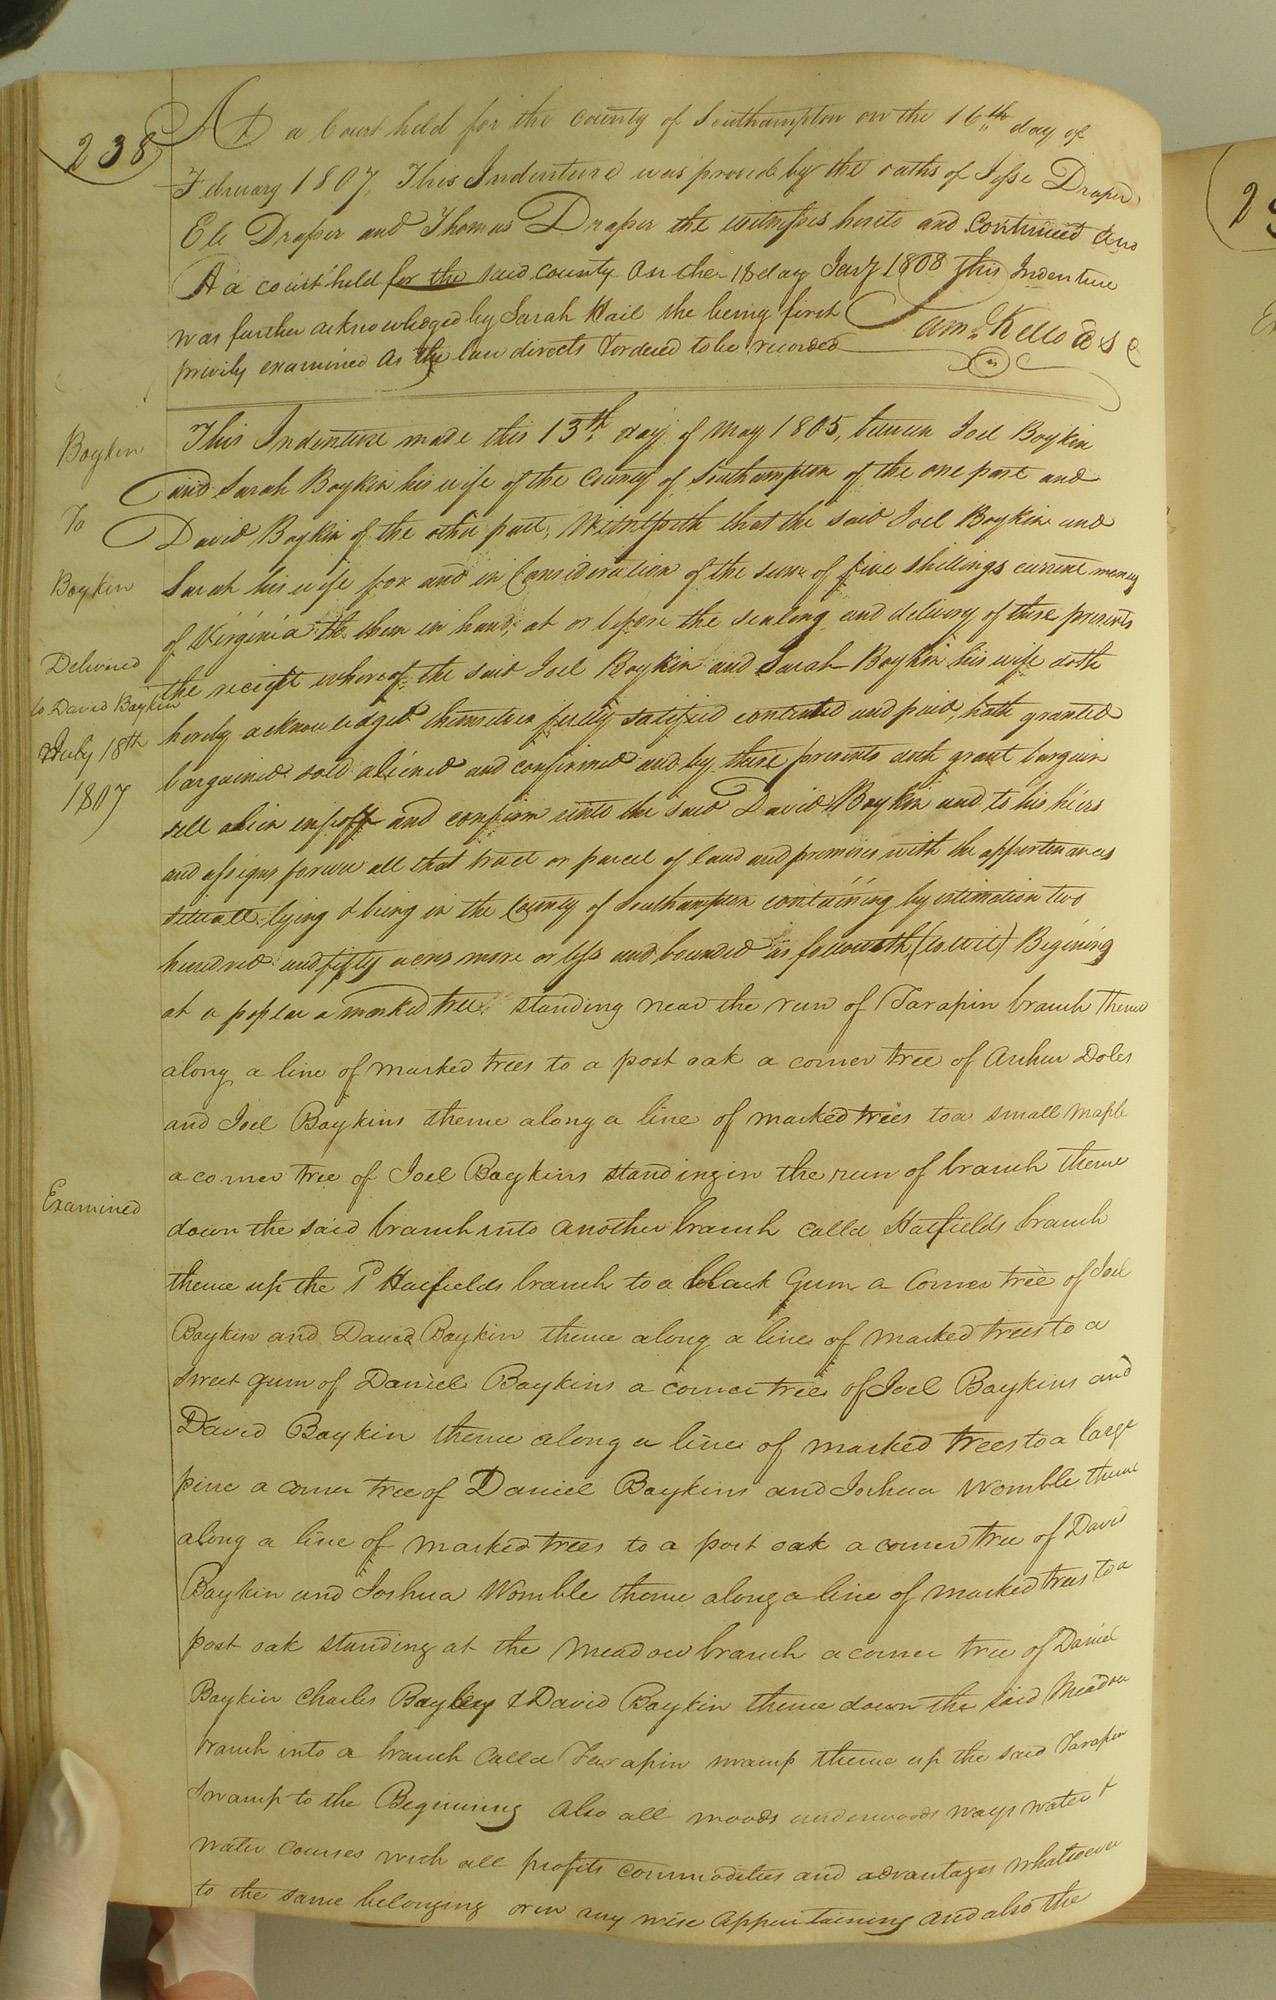 238
At a Court held for the county of Southampton on the 16th day of
February 1807, This Indenture was proved by the oaths of Jesse Draper,
Eli Draper and Thomas Draper the witnesses hereto and Continued And
At a court held for the said county on the 18 day Jany 1808 This Indenture
was further acknowledged by Sarah Hail she being first
privily examined As the law directs & ordered to be recorded
Saml Kello C S C
Boykin
To
Boykin
Delivered
to David Boykin
July 18th
1807
This Indenture made this 13th day of May 1805, between Joel Boykin
and Sarah Boykin his wife of the County of Southampton of the one part and
David Boykin of the other part, Witnesseth that the said Joel Boykin and
Sarah his wife for and in Consideration of the sum of five Shillings current money
of Virginia to them in hand, at or before the sealing and delivery of these presents
the receipt whereof the said Joel Boykin and Sarah Boykin his wife doth
hereby acknowledged themselves fully satisfied contented and paid, hath granted
bargained sold aliened and confirmed and by these presents doth grant bargain
sell alien infeoff and confirm unto the said David Boykin and to his heirs
and assigns forever all that tract or parcel of land and premises with the appurtenances
situate lying & being in the County of Southampton containing by estimation two
hundred and fifty acres more or less and bounded as followeth (to wit) Begining
at a poplar a marked tree standing near the run of Tarapin branch thence
along a line of marked trees to a post oak a corner tree of Arthur Doles
and Joel Boykins thence along a line of marked trees to a small Maple
a corner tree of Joel Boykins standing in the run of branch thence
down the said branch into another branch calld Hatfields branch
thence up the sd Hatfields branch to a black Gum a Corner tree of Joel
Boykin and David Boykin thence along a line of marked trees to a
sweet gum of Daniel Boykins a corner tree of Joel Boykins and
David Boykin thence along a line of marked trees to a large
pine a corner tree of Daniel Boykins and Joshua Womble thence
along a line of marked trees to a post oak a corner tree of David
Boykin and Joshua Womble thence along a line of marked trees to a
post oak standing at the Meadow branch a corner tree of Daniel
Boykin Charles Bayley & David Boykin thence down the said Meadow
branch into a branch Calld Tarapin swamp thence up the said Tarapin
Swamp to the Beginning Also all woods underwoods ways water &
water courses with all profits commodities and advantages whatsoever
to the same belonging or in any wise appurtaining and also the
Examined